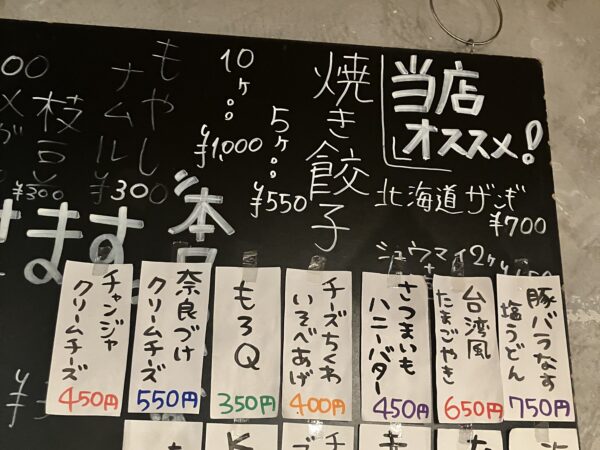 当店
オススメ!
北海道ザンギ
¥700
シュウマイ2ケ
焼き餃子
5ケ
¥550
10ケ
¥1,000
もやし
ナムル
¥300
枝豆
¥300
本日
ます。
豚バラなす
塩うどん
750円
台湾風
たまごやき
650円
さつまいも
ハニーバター
450円
チーズちくわ
いそべあげ
400円
もろQ
350円
奈良づけ
クリームチーズ
550円
チャンジャ
クリームチーズ
450円